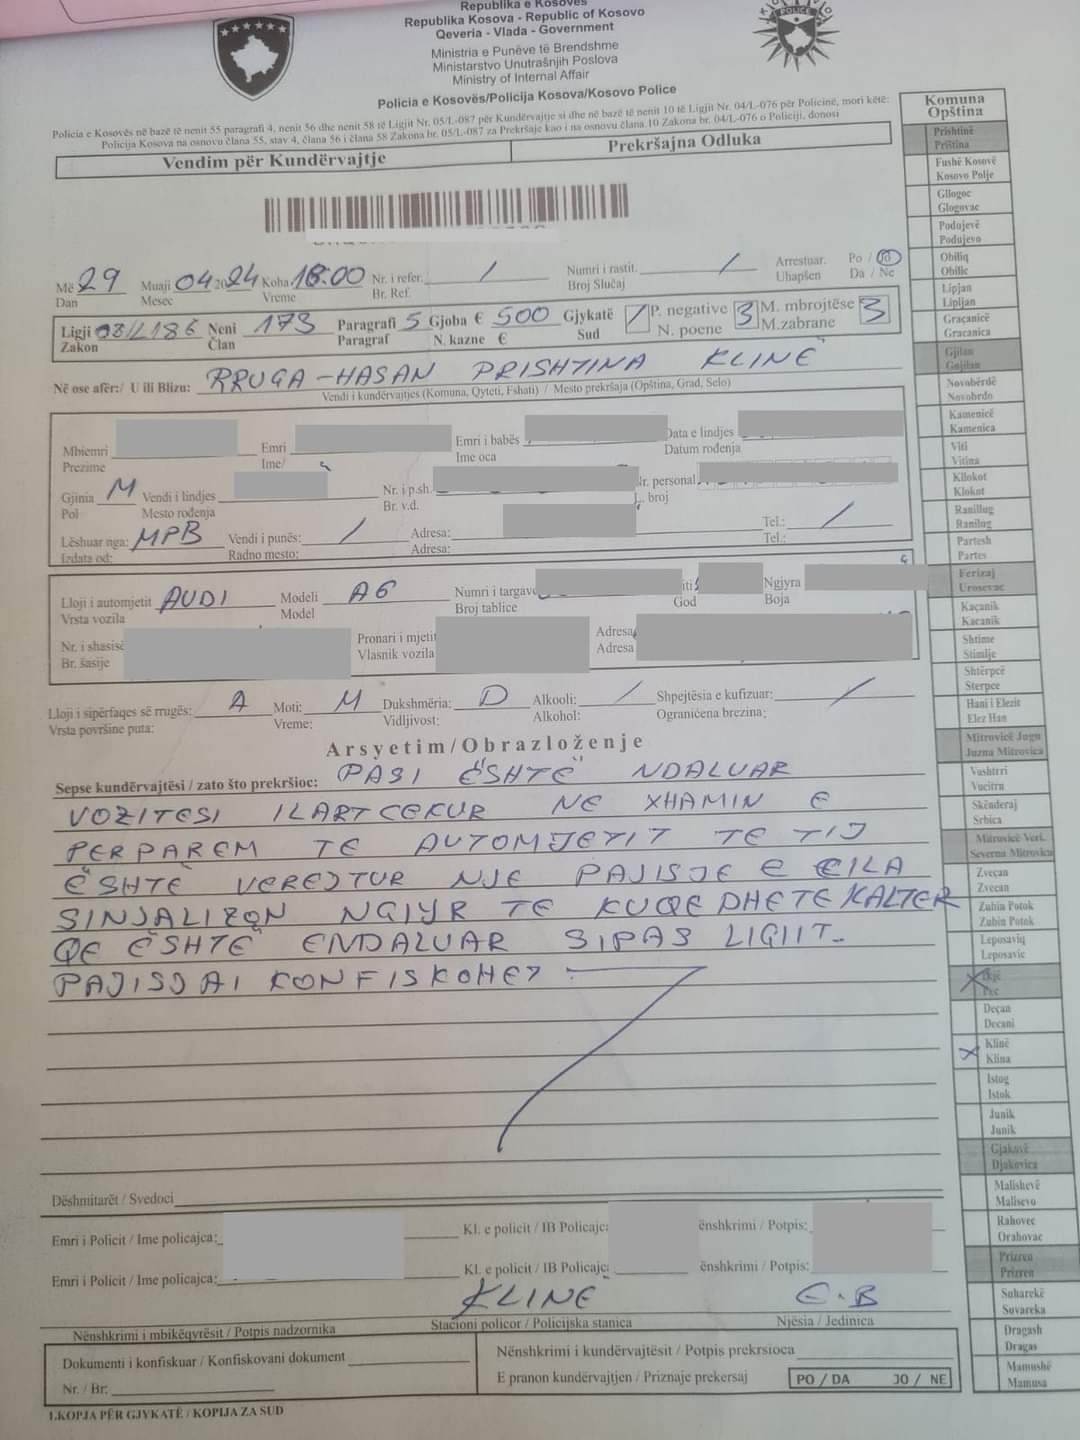 Republika e Kosovës
Republika Kosova - Republic of Kosovo
Qeveria - Vlada - Government
Ministria e Punëve të Brendshme
Ministarstvo Unutrašnjih Poslova
Ministry of Internal Affair
Policia e Kosovës/Policija Kosova/Kosovo Police
POLICE
Policia e Kosovës në bazë të nenit 55 paragrafi 4, nenit 56 dhe nenit 58 të Ligjit Nr. 05/L-087 për Kundërvajtje si dhe në bazë të nenit 10 të Ligjit Nr. 04/L-076 për Policinë, mori këtë:
Policija Kosova na osnovu člana 55, stav 4, člana 56 i člana 58 Zakona br. 05/L-087 za Prekršaje kao i na osnovu člana 10 Zakona br. 04/L-076 o Policiji, donosi
Vendim për Kundërvajtje Prekršajna Odluka
Më 29 Muaji 04 2024 Koha 18:00 Nr. i refer. / Numri i rastit. / Arrestuar. Po / Jo
Dan Mesec Vreme Br. Ref. Broj Slučaj Uhapšen Da / Ne
Ligji 08/L186 Neni 173 Paragrafi 5 Gjoba € 500 Gjykatë / P. negative 3 M. mbrojtëse 3
Zakon Član Paragraf N. kazne € Sud N. poene M.zabrane
Në ose afër:/ U ili Blizu: RRUGA-HASAN PRISHTINA KLINË
Vendi i kundërvajtjes (Komuna, Qyteti, Fshati) / Mesto prekršaja (Opština, Grad, Selo)
Mbiemri Emri Emri i babës Data e lindjes
Prezime Ime/ Ime oca Datum rođenja
Gjinia M Vendi i lindjes Nr. i p.sh. Nr. personal
Pol Mesto rođenja Br. v.d. L. broj
Lëshuar nga: MPB Vendi i punës: / Adresa: Tel.: /
Izdata od: Radno mesto: Adresa: Tel.:
Lloji i automjetit AUDI Modeli A6 Numri i targave iti Ngjyra
Vrsta vozila Model Broj tablice God Boja
Nr. i shasisë Pronari i mjetit Adresa
Br. šasije Vlasnik vozila Adresa
Lloji i sipërfaqes së rrugës: A Moti: M Dukshmëria: D Alkooli: / Shpejtësia e kufizuar: /
Vrsta površine puta: Vreme: Vidljivost: Alkohol: Ograničena brezina:
Arsyetim/Obrazloženje
Sepse kundërvajtësi / zato što prekršioc: PASI ËSHTË NDALUAR
VOZITESI ILARTCEKUR NE XHAMIN E
PERPAREM TE AUTOMJETIT TE TIJ
ËSHTË VEREJTUR NJE PAJISJE E CILA
SINJALIZON NGJYR TE KUQE DHE TE KALTER
QE ËSHTË ENDALUAR SIPAS LIGJIT.
PAJISJA I KONFISKOHET
Dëshmitarët / Svedoci
Emri i Policit / Ime policajca: Kl. e policit / IB Policajca ënshkrimi / Potpis:
Emri i Policit / Ime policajca: Kl. e policit / IB Policajca ënshkrimi / Potpis:
KLINE E.B
Nënshkrimi i mbikëqyrësit / Potpis nadzornika Stacioni policor / Policijska stanica Njësia / Jedinica
Dokumenti i konfiskuar / Konfiskovani dokument Nënshkrimi i kundërvajtësit / Potpis prekrsioca
Nr. / Br: E pranon kundërvajtjen / Priznaje prekersaj PO / DA JO / NE
1.KOPJA PËR GJYKATË / KOPIJA ZA SUD
Komuna
Opština
Prishtinë
Priština
Fushë Kosovë
Kosovo Polje
Gllogoc
Glogovac
Podujevë
Podujevo
Obiliq
Obilic
Lipjan
Lipljan
Graçanicë
Gracanica
Gjilan
Gnjilan
Novobërdë
Novobrdo
Kamenicë
Kamenica
Viti
Vitina
Kllokot
Klokot
Ranillug
Ranilug
Partesh
Partes
Ferizaj
Urosevac
Kaçanik
Kacanik
Shtime
Stimlje
Shtërpcë
Sterpce
Hani i Elezit
Elez Han
Mitrovicë Jugu
Juzna Mitrovica
Vushtrri
Vucitrn
Skënderaj
Srbica
Mitrovicë Veri.
Severna Mitrovica
Zveçan
Zvecan
Zubin Potok
Zubin Potok
Leposaviq
Leposavic
Deçan
Decani
Klinë
Klina
Istog
Istok
Junik
Junik
Gjakovë
Djakovica
Malishevë
Malisevo
Rahovec
Orahovac
Prizren
Prizren
Suharekë
Suvareka
Dragash
Dragas
Mamushë
Mamusa